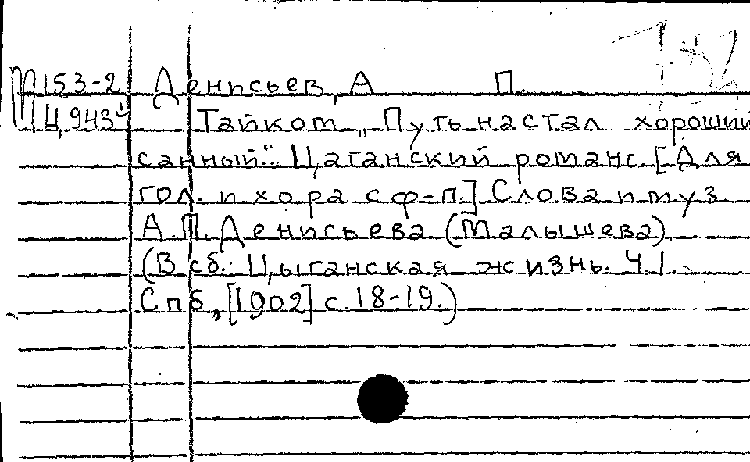 153-2 Денисьев, А П.
Ц943 Тайком „Путь настал хороший
санный". Цыганский романс. [Для
гол. и хора с ф-п.] Слова и муз.
А.П. Денисьева (Малышева)
(В сб: Цыганская жизнь. Ч.1.
Спб., [1902] с. 18-19.)